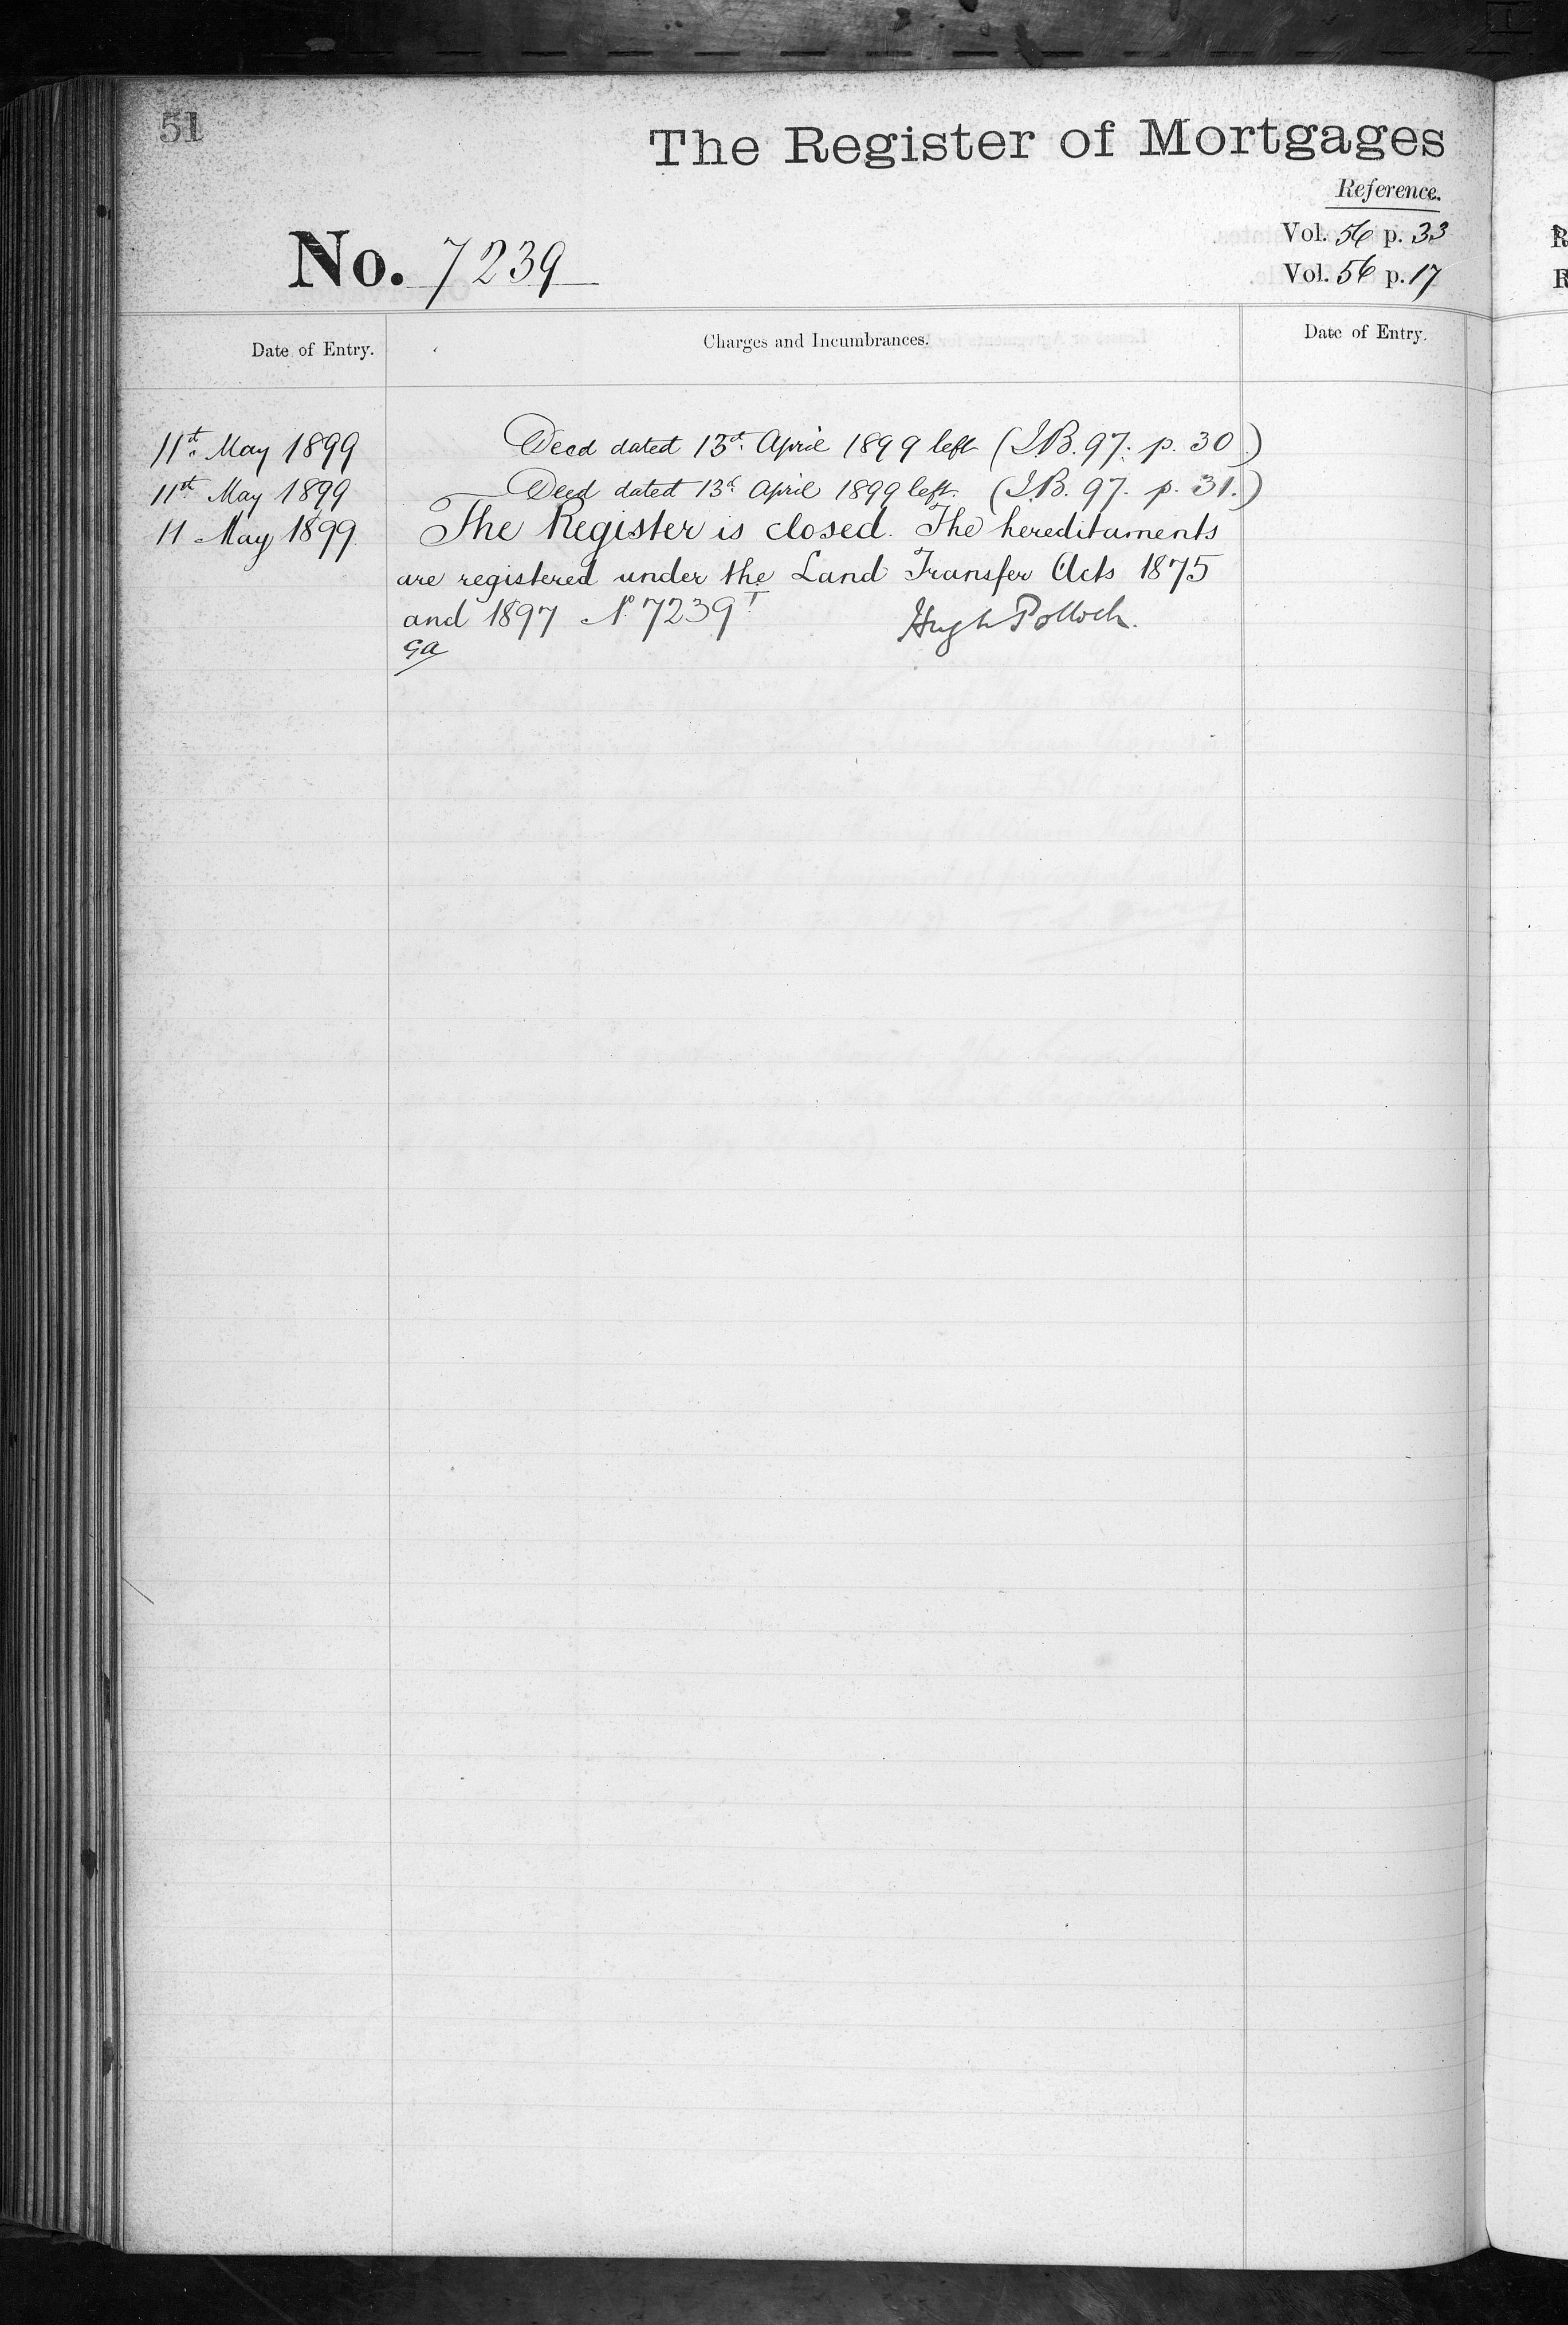 51
The Register of Mortgages
Reference.
No. 7239
Vol. 56 p. 33
Vol. 56 p. 17
Date of Entry. Charges and Incumbrances. Date of Entry.
11th May 1899 Deed dated 13th April 1899 left (I.B. 97. p. 30.)
11th May 1899 Deed dated 13th April 1899 left. (I.B. 97. p. 31.)
11 May 1899 The Register is closed. The hereditaments
are registered under the Land Transfer Acts 1875
and 1897 No 7239T Hugh Pollock.
GA